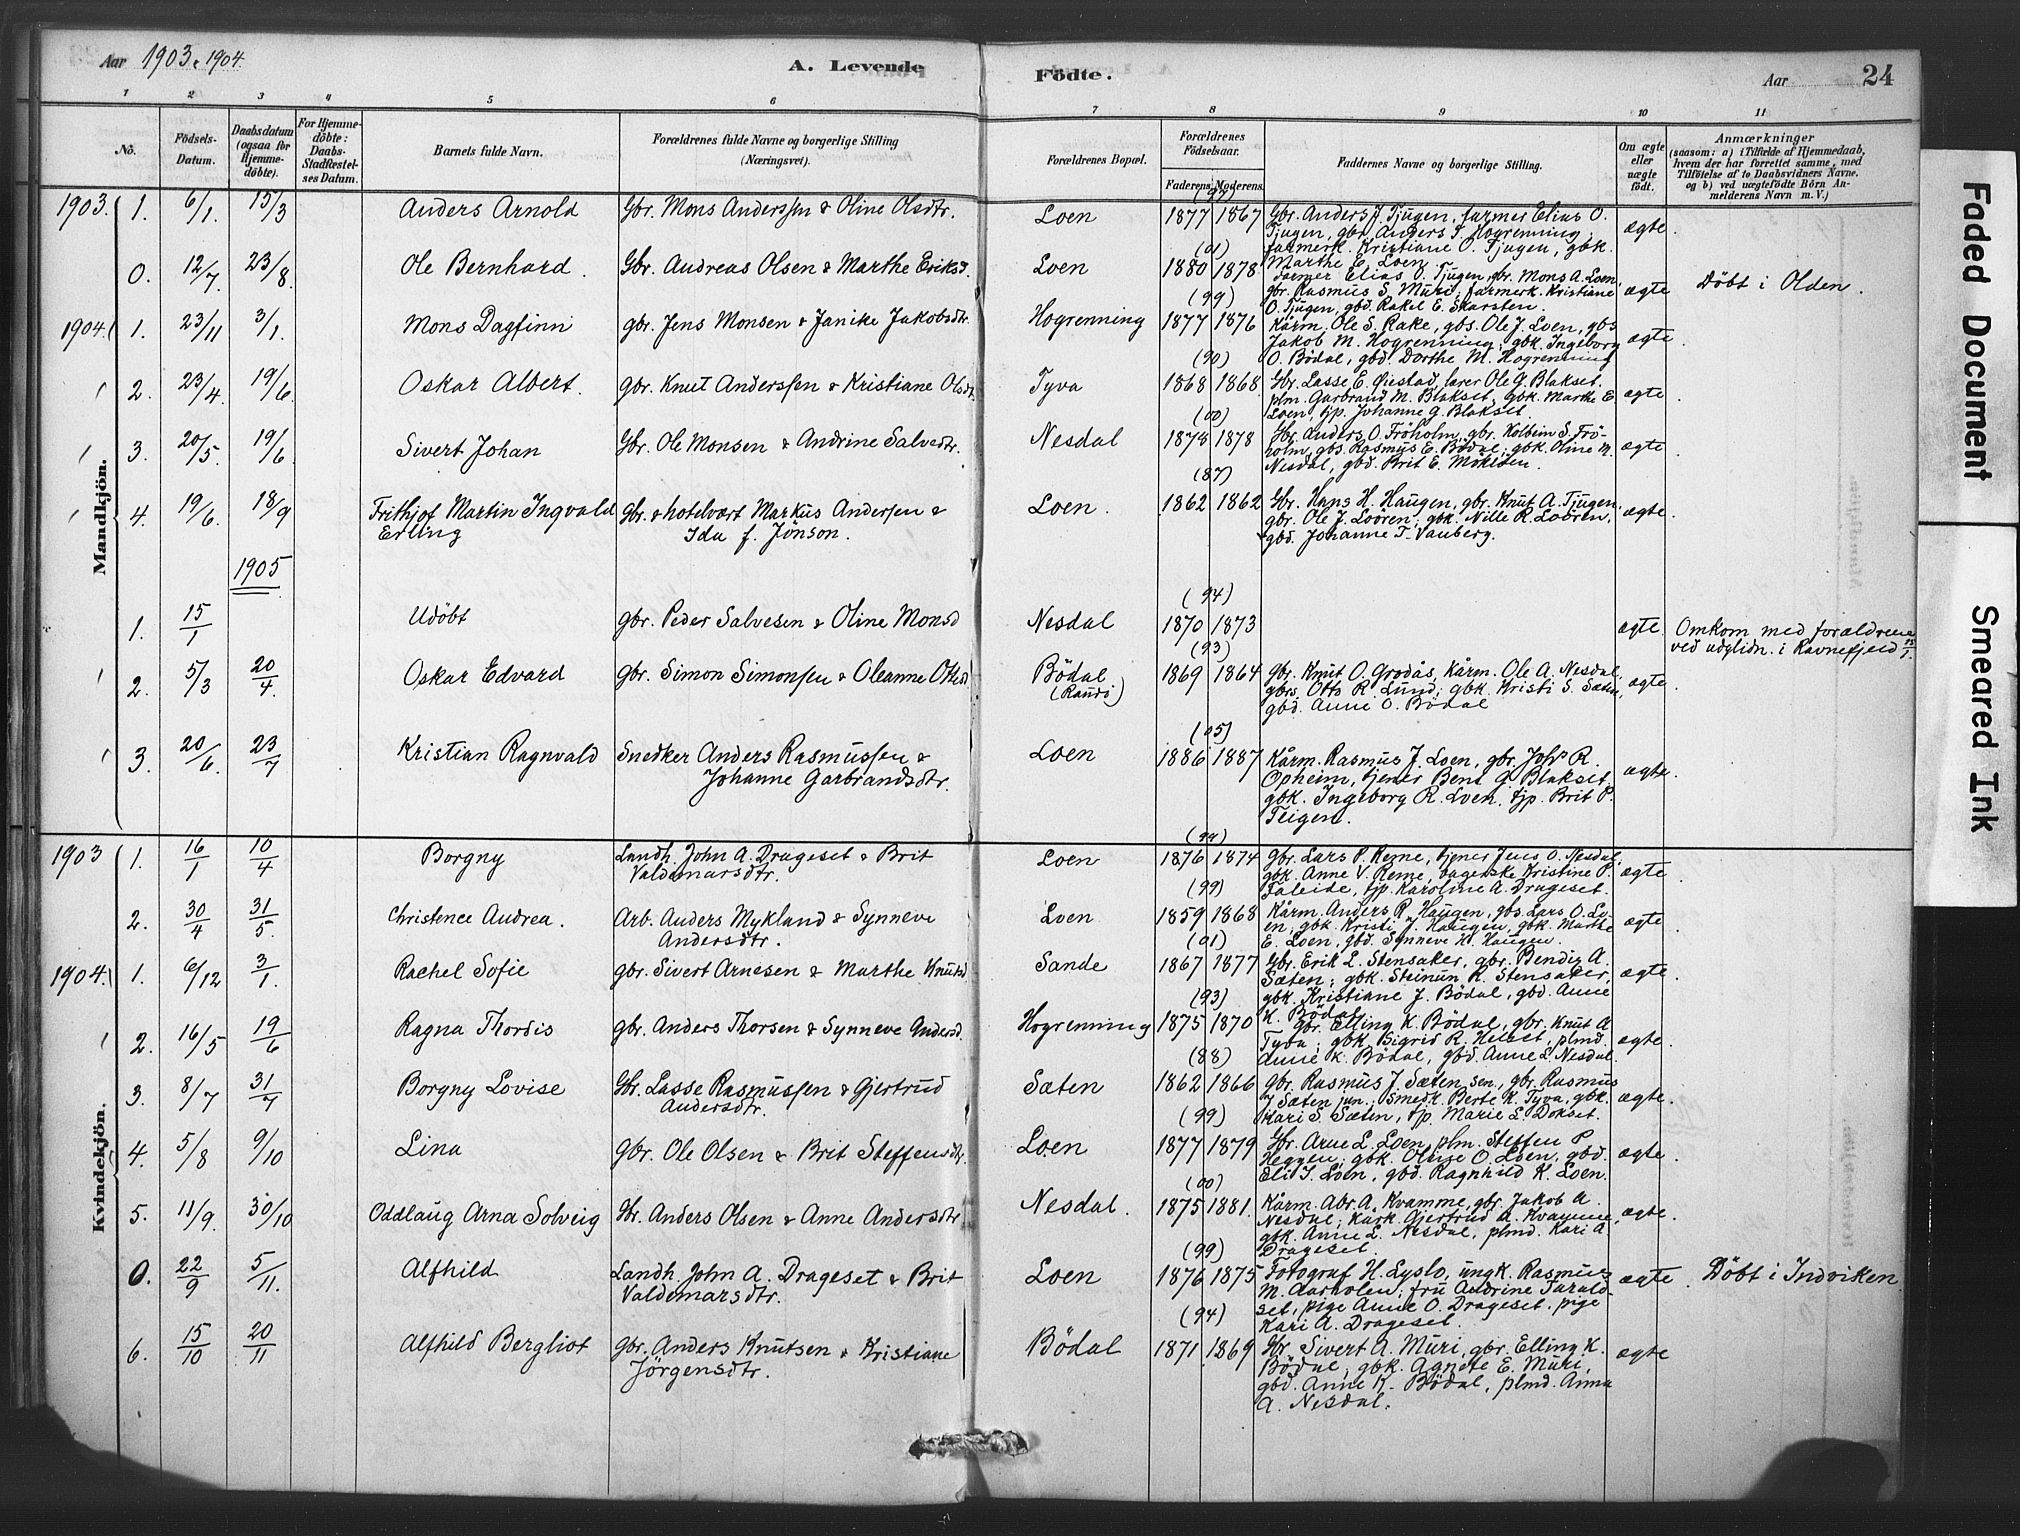 Aar 1903. 1904.
A. Levende
Födte.
Aar
24
1 2 3 4 5 6 7 8 9 10 11
No.
Födsels-Datum.
Daabsdatum (ogsaa for Hjemme-döbte).
For Hjemme-döbte: Daabs-Stadfæstel-ses Datum.
Barnets fulde Navn.
Forældrenes fulde Navne og borgerlige Stilling (Næringsvei).
Forældrenes Bopæl.
Forældrenes Födselsaar.
Faderens. Moderens.
Faddernes Navne og borgerlige Stilling.
Om ægte eller uægte födt.
Anmærkninger
(saasom: a) i Tilfælde af Hjemmedaab, hvem der har forrettet samme, med Tilföielse af to Daabsvidners Navne. og b) ved uægtefödte Börn An-melderens Navn m. V.)
Mandkjön.
1903. 1. 6/1. 15/3 Anders Arnold Gbr. Mons Anderssen & Oline Olsdtr. Loen (97) 1877 1867 Gbr. Anders J. Tjugen, farmer Elias O.
Tjugen, gbr. Anders T. Hogrenning;
farmerk. Kristiane O. Tjugen, gbk.
Marthe E. Loen. ægte.
0. 12/7. 23/8. Ole Bernhard. Gbr. Andreas Olsen & Marthe Eriksd. Loen (01) 1880 1878 Farmer Elias O. Tjugen, gbr. Mons A. Loen,
gbr. Rasmus S. Muri; farmerk. Kristiane
O. Tjugen, gbd. Rakel E. Skarsten. ægte Döbt i Olden.
1904. 1. 23/11 3/1. Mons Dagfinn gbr. Jens Monsen & Janike Jakobsdtr. Hogrenning (99) 1877 1876 Kårm. Ole S. Rake, gbs. Ole J. Loen, gbs
Jakob M. Hogrenning; gbk. Ingeborg
O. Bödal, gbd. Dorthe M. Hogrenning ægte.
2. 23/4. 19/6. Oskar Albert. gbr. Knut Anderssen & Kristiane Olsdtr. Tyva (90) 1868 1868 Gbr. Lasse E. Øiestad, lærer Ole G. Blakset.
plm. Garbrand M. Blakset; gbk. Marthe E.
Loen, tjp. Johanne G. Blakset. ægte.
3. 20/5. 19/6 Sivert Johan Gbr. Ole Monsen & Andrine Salvedtr. Nesdal (00) 1878 1878 Gbr. Anders O. Fröholm, gbr. Kolbein S. Frö-
holm, gbs. Rasmus E. Bödal; gbk. Oline M.
Nesdal, gbd. Brit E. Möklden. ægte.
4. 19/6. 18/9 Frithjof Martin Ingvald
Erling Gbr. & hotelvært Markus Andersen &
Ida f. Jönson. Loen. (87) 1862 1862 Gbr. Hans H. Haugen, gbr. Knut A. Tjugen,
gbr. Ole J. Looren; gbk. Nille R. Looren,
gbd. Johanne T. Vauberg. ægte.
1905
1. 15/1 Udöbt gbr. Peder Salvesen & Oline Monsd Nesdal (94) 1870 1873 ægte. Omkom med forældrene
ved udglidn. i Ravnefjeld 15/1.
2. 5/3 20/4. Oskar Edvard gbr. Simon Simonsen & Oleanne Ottesd Bödal
(Raudi) (93) 1869 1864 gbr. Knut O. Grodås, Kårm. Ole A. Nesdal,
gbrs. Otto R. Lund; gbk. Kristi S. Sæten,
gbd. Anne O. Bödal ægte.
3. 20/6. 23/7 Kristian Ragnvald Snedker Anders Rasmussen &
Johanne Garbrandsdtr. Loen (05) 1886 1887 Kårm. Rasmus J. Loen, gbr. Johs R.
Opheim, tjener Bent G. Blakset,
gbk. Ingeborg R. Loen, tjp. Brit P.
Teigen. ægte.
Kvindekjön.
1903 1. 16/1 10/4 Borgny Landh. John A. Drageset & Brit
Valdemarsdtr. Loen (99) 1876 1874 gbr. Lars P. Reme, tjener Jens O. Nesdal;
gbk. Anne V. Reme, bagerske Kristine P.
Faleide, tjp. Karoline A. Drageset. ægte.
2. 30/4 31/5. Christence Andrea. Arb. Anders Mykland & Synneve
Andersdtr. Loen (99) 1859 1868 Kårm. Anders P. Haugen, gbs. Lars O. Lo-
en; gbk. Kristi J. Haugen, gbk. Marthe
E. Loen, gbd. Synneve H. Haugen. ægte.
1904. 1. 6/12 3/1. Rachel Sofie gbr. Sivert Arnesen & Marthe Knutsd Sande (01) 1867 1877 Gbr. Erik L. Stensaker, gbr. Bendix A.
Sæten; gbk. Steinun R. Stensaker,
gbk. Kristiane J. Bödal, gbd. Anne
K. Bödal. ægte.
2. 16/5 19/6 Ragna Thordis gbr. Anders Thorsen & Synneve Andersd. Hogrenning (93) 1875 1870 gbr. Elling K. Bödal, gbr. Knut A
Tyva; gbk. Sigrid R. Helset, plmd.
Anne K. Bödal, gbd. Anne L. Nesdal. ægte.
3. 8/7 31/7 Borgny Lovise Gbr. Lasse Rasmussen & Gjertrud
Andersdtr. Sæten (88) 1862 1866 gbr. Rasmus J. Sæten sen, gbr. Rasmus
J. Sæten jun.; Smedk. Berte K. Tyva, gbk.
Kari S. Sæten, tjp. Marie L. Dokset. ægte.
4. 5/8 9/10 Lina gbr. Ole Olsen & Brit Steffensdtr. Loen (99) 1877 1879 Gbr. Arne L. Loen, plm. Steffen P.
Heggen; gbk. Oline O. Loen, gbd.
Eli I. Loen, gbd. Ragnhild K. Loen. ægte.
5. 11/9. 30/10 Oddlaug Arna Solveig Gbr. Anders Olsen & Anne Andersdtr Nesdal. (00) 1875 1881 Kårm. Abr. A. Kvamme, gbr. Jakob A.
Nesdal; Kårk. Gjertrud A. Kvamme,
gbk. Anne L. Nesdal, plmd. Kari A.
Drageset. ægte.
0. 22/9 5/11. Alfhild Landh. John A. Drageset & Brit
Valdemarsdtr. Loen (99) 1876 1875 Fotograf H. Lyslo, ungk. Rasmus
M. Aarholen; fru Andrine Tarald-
set, pige Anne O. Drageset, pige
Kari A. Drageset. ægte. Döbt i Indviken
6. 15/10 20/11 Alfhild Bergliot Gbr. Anders Knutsen & Kristiane
Jörgensdtr. Bödal (94) 1871. 1869 Gbr. Sivert A. Muri, gbr. Elling K.
Bödal; gbk. Agnete E. Muri,
gbd. Anne K. Bödal, plmd. Anna
A. Nesdal. ægte
Faded Document
Smeared Ink